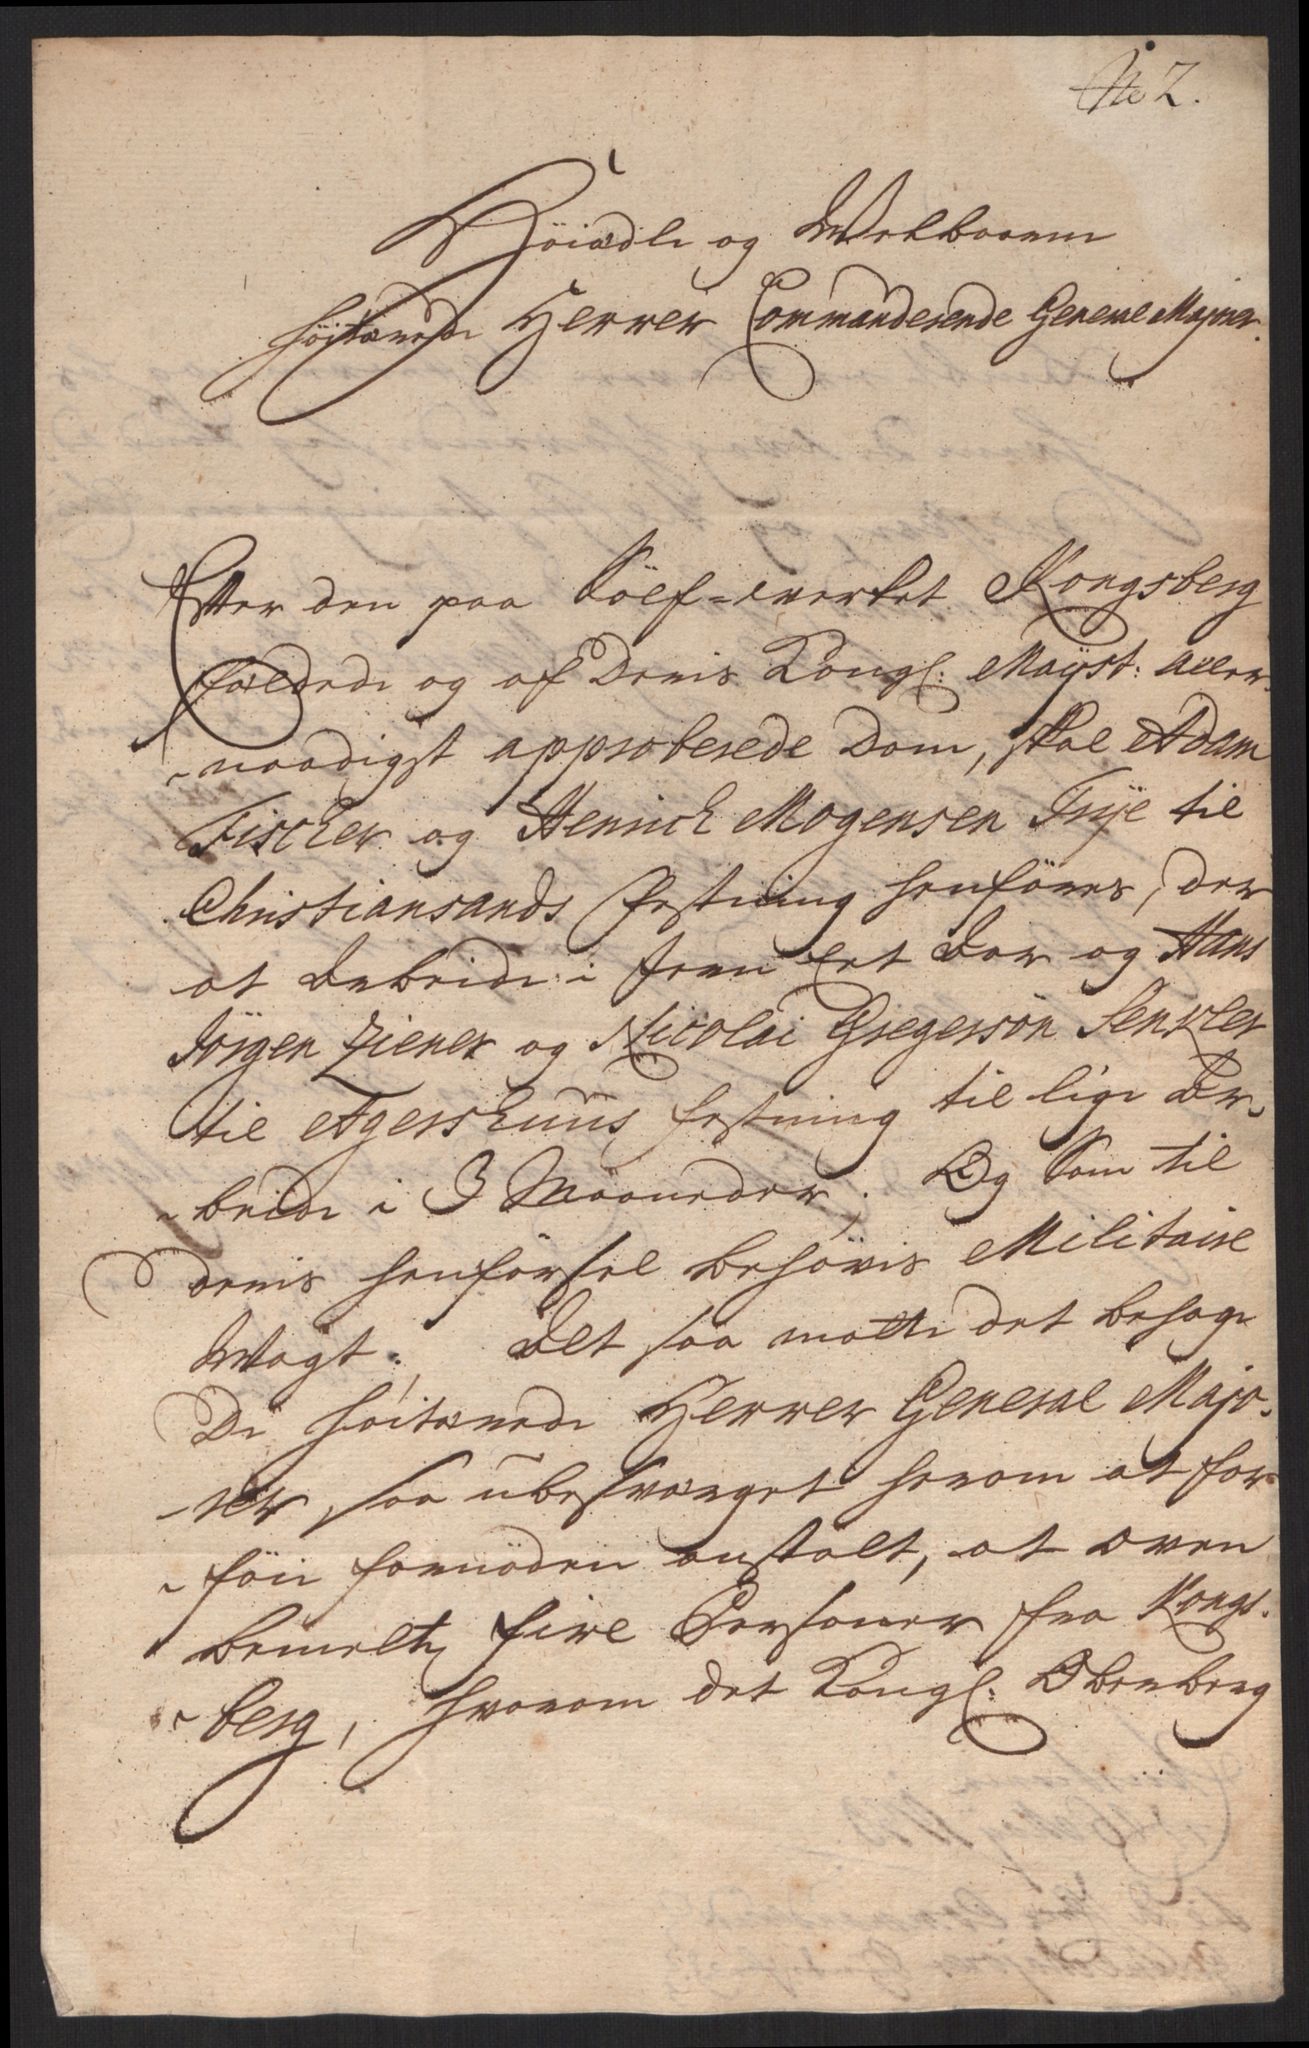 No 7.
Höiædle og Welbaarne
Höitærede Herrer Commanderende General Majorer.
Efter den paa Sölf-Werket Kongsberg
fældede og af Deris Kongl: Mayst: aller-
naadigst approberede Dom, skal Adam
Fischer og Henrich Mogensen Frÿe til
Christiansands Fæstning henföres, der
at arbeide i Jern Eet aar og Hans
Jörgen Ziener og Nicolai Gregersön Senkler
til Agershuus Fæstning til lige Ar-
beide i 3 Maaneder; Og Som til
deris henförsel behövis Militaire
Wagt; Alt saa maatte det behage
De höitærede Herrer General Majo-
rer saa ubesværget herom at for-
föie fornöden anstalt, at oven
bemelte fire Personer fra Kongs-
berg, hvorom det Kongl: Oberberg